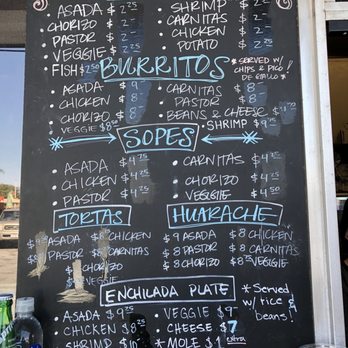 • ASADA $2.25 • SHRIMP $2.25
• CHORIZO $2- • CARNITAS $2-
• PASTOR $2- • CHICKEN $2-
• VEGGIE $2- • POTATO $2-
• FISH $2.50
BURRITOS
* SERVED W/ CHIPS & PICO DE GALLO! *
• ASADA $9- • CARNITAS $8-
• CHICKEN $8- • PASTOR $8-
• CHORIZO $8- • BEANS & CHEESE
• VEGGIE $8.50 • SHRIMP $9.75
SOPES
• ASADA $4.75 • CARNITAS $4.25
• CHICKEN $4.25 • CHORIZO $4.25
• PASTOR $4.25 • VEGGIE $4.50
TORTAS HUARACHE
ASADA $8 CHICKEN $9 ASADA $8 CHICKEN
PASTOR $8 CARNITAS $8 PASTOR $8 CARNITAS
$8 CHORIZO $8 CHORIZO $8 VEGGIE
VEGGIE
ENCHILADA PLATE * Served w/ rice & beans!
• ASADA $9.25 • VEGGIE $9-
• CHICKEN $8 • CHEESE $7
• SHRIMP * MOLE $1 extra